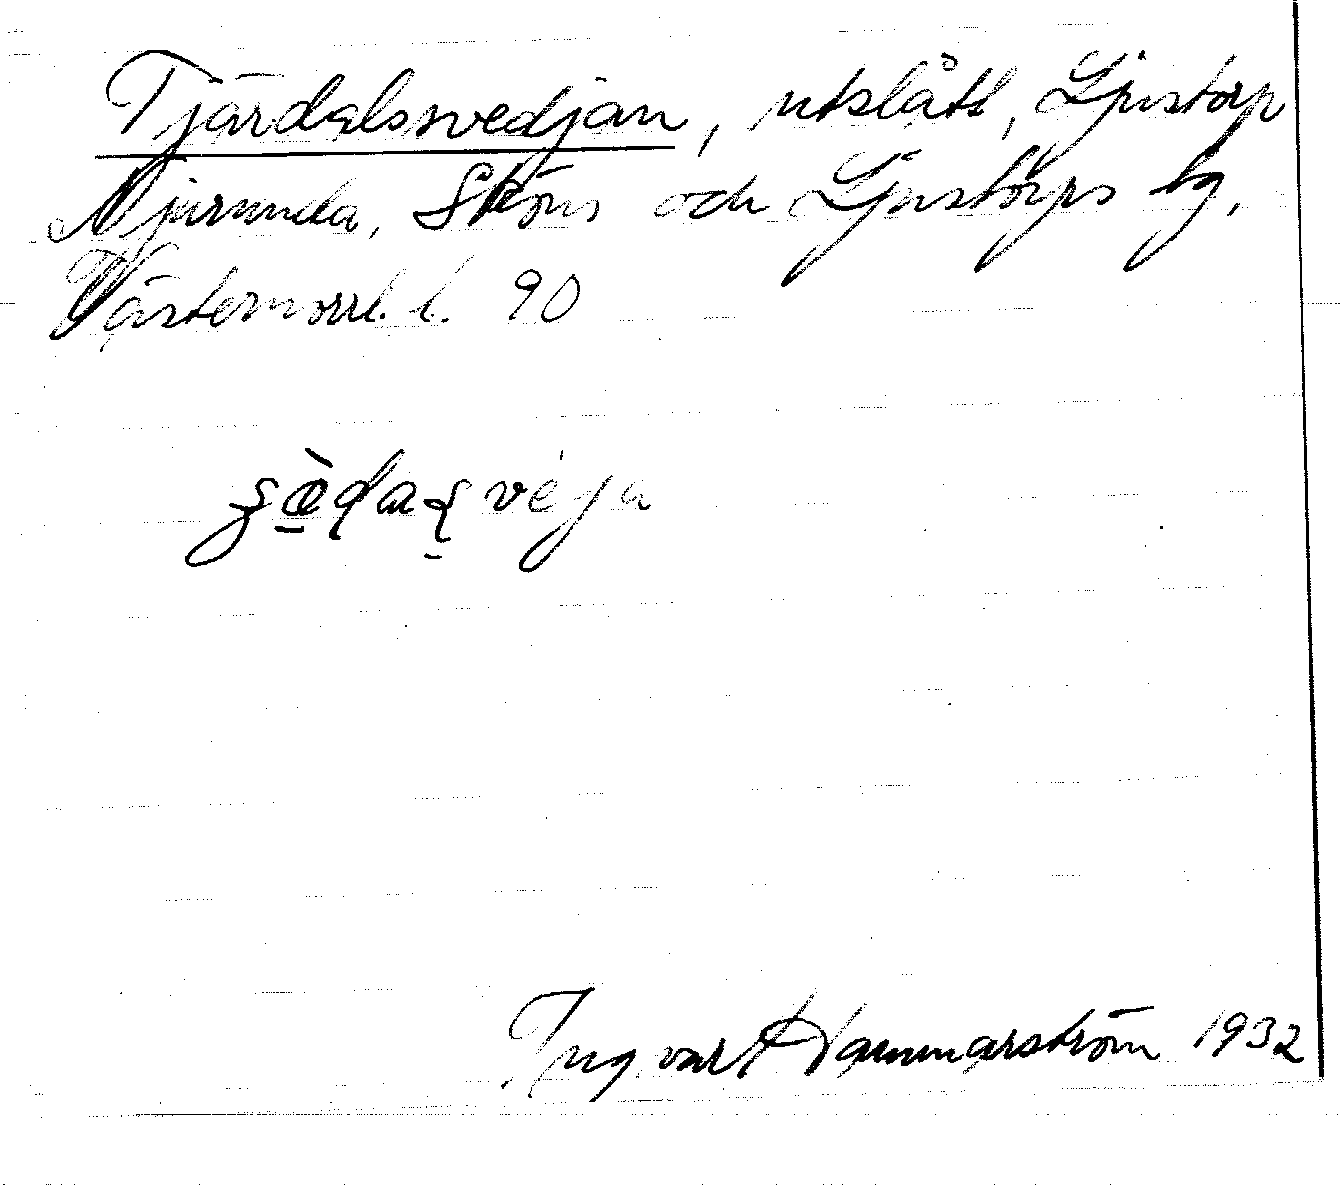 Tjärdalssvedjan, utslått, Ljustorp
Njurunda, Sköns och Ljustorps tg,
Västernorrl. l. 90
Ingvar Hammarström 1932